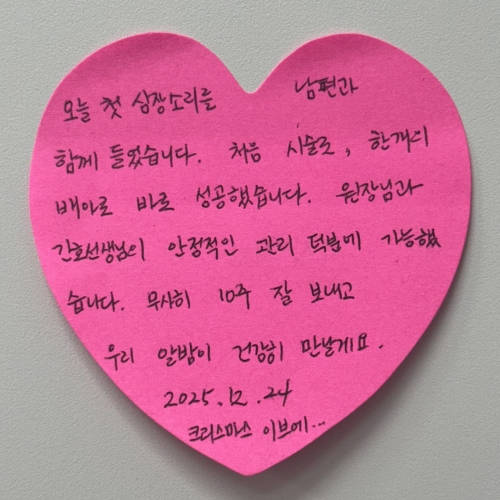 오늘 첫 심장소리를 남편과
함께 들었습니다. 처음 시술로, 한개의
배아로 바로 성공했습니다. 원장님과
간호선생님의 안정적인 관리 덕분에 가능했
습니다. 무사히 10주 잘 보내고
우리 알밤이 건강히 만날게요.
2025.12.24
크리스마스 이브에...